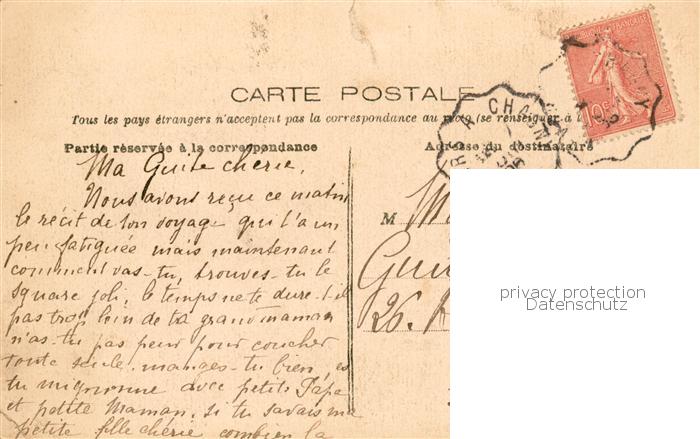 CARTE POSTALE
Tous les pays étrangers n'acceptent pas la correspondance au recto (se renseigner à la
Partie réservée à la correspondance
Adresse du destinataire
Ma Guite chérie,
Nous avons reçu ce matin
le récit de ton voyage qui t'a un
peu fatiguée mais maintenant
comment vas-tu, trouves-tu le
square joli, le temps ne te dure-t-il
pas trop loin de ta grand maman
n'as-tu pas peur pour coucher
toute seule, manges-tu bien, es
tu mignonne avec petit Papa
et petite Maman, si tu savais ma
petite fille chérie combien la
M
Gui
26.
10c
CHAGN
privacy protection
Datenschutz